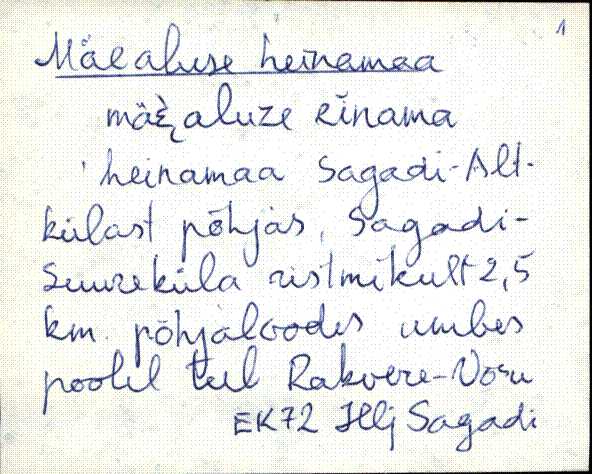 1
Mäealuse heinamaa
mäɛ̀aluze einama
heinamaa Sagadi-Alt-
külast põhjas, Sagadi-
Suureküla ristmikult 2,5
km põhjaloodes umbes
poolel teel Rakvere-Võsu
EK72 Hlj Sagadi